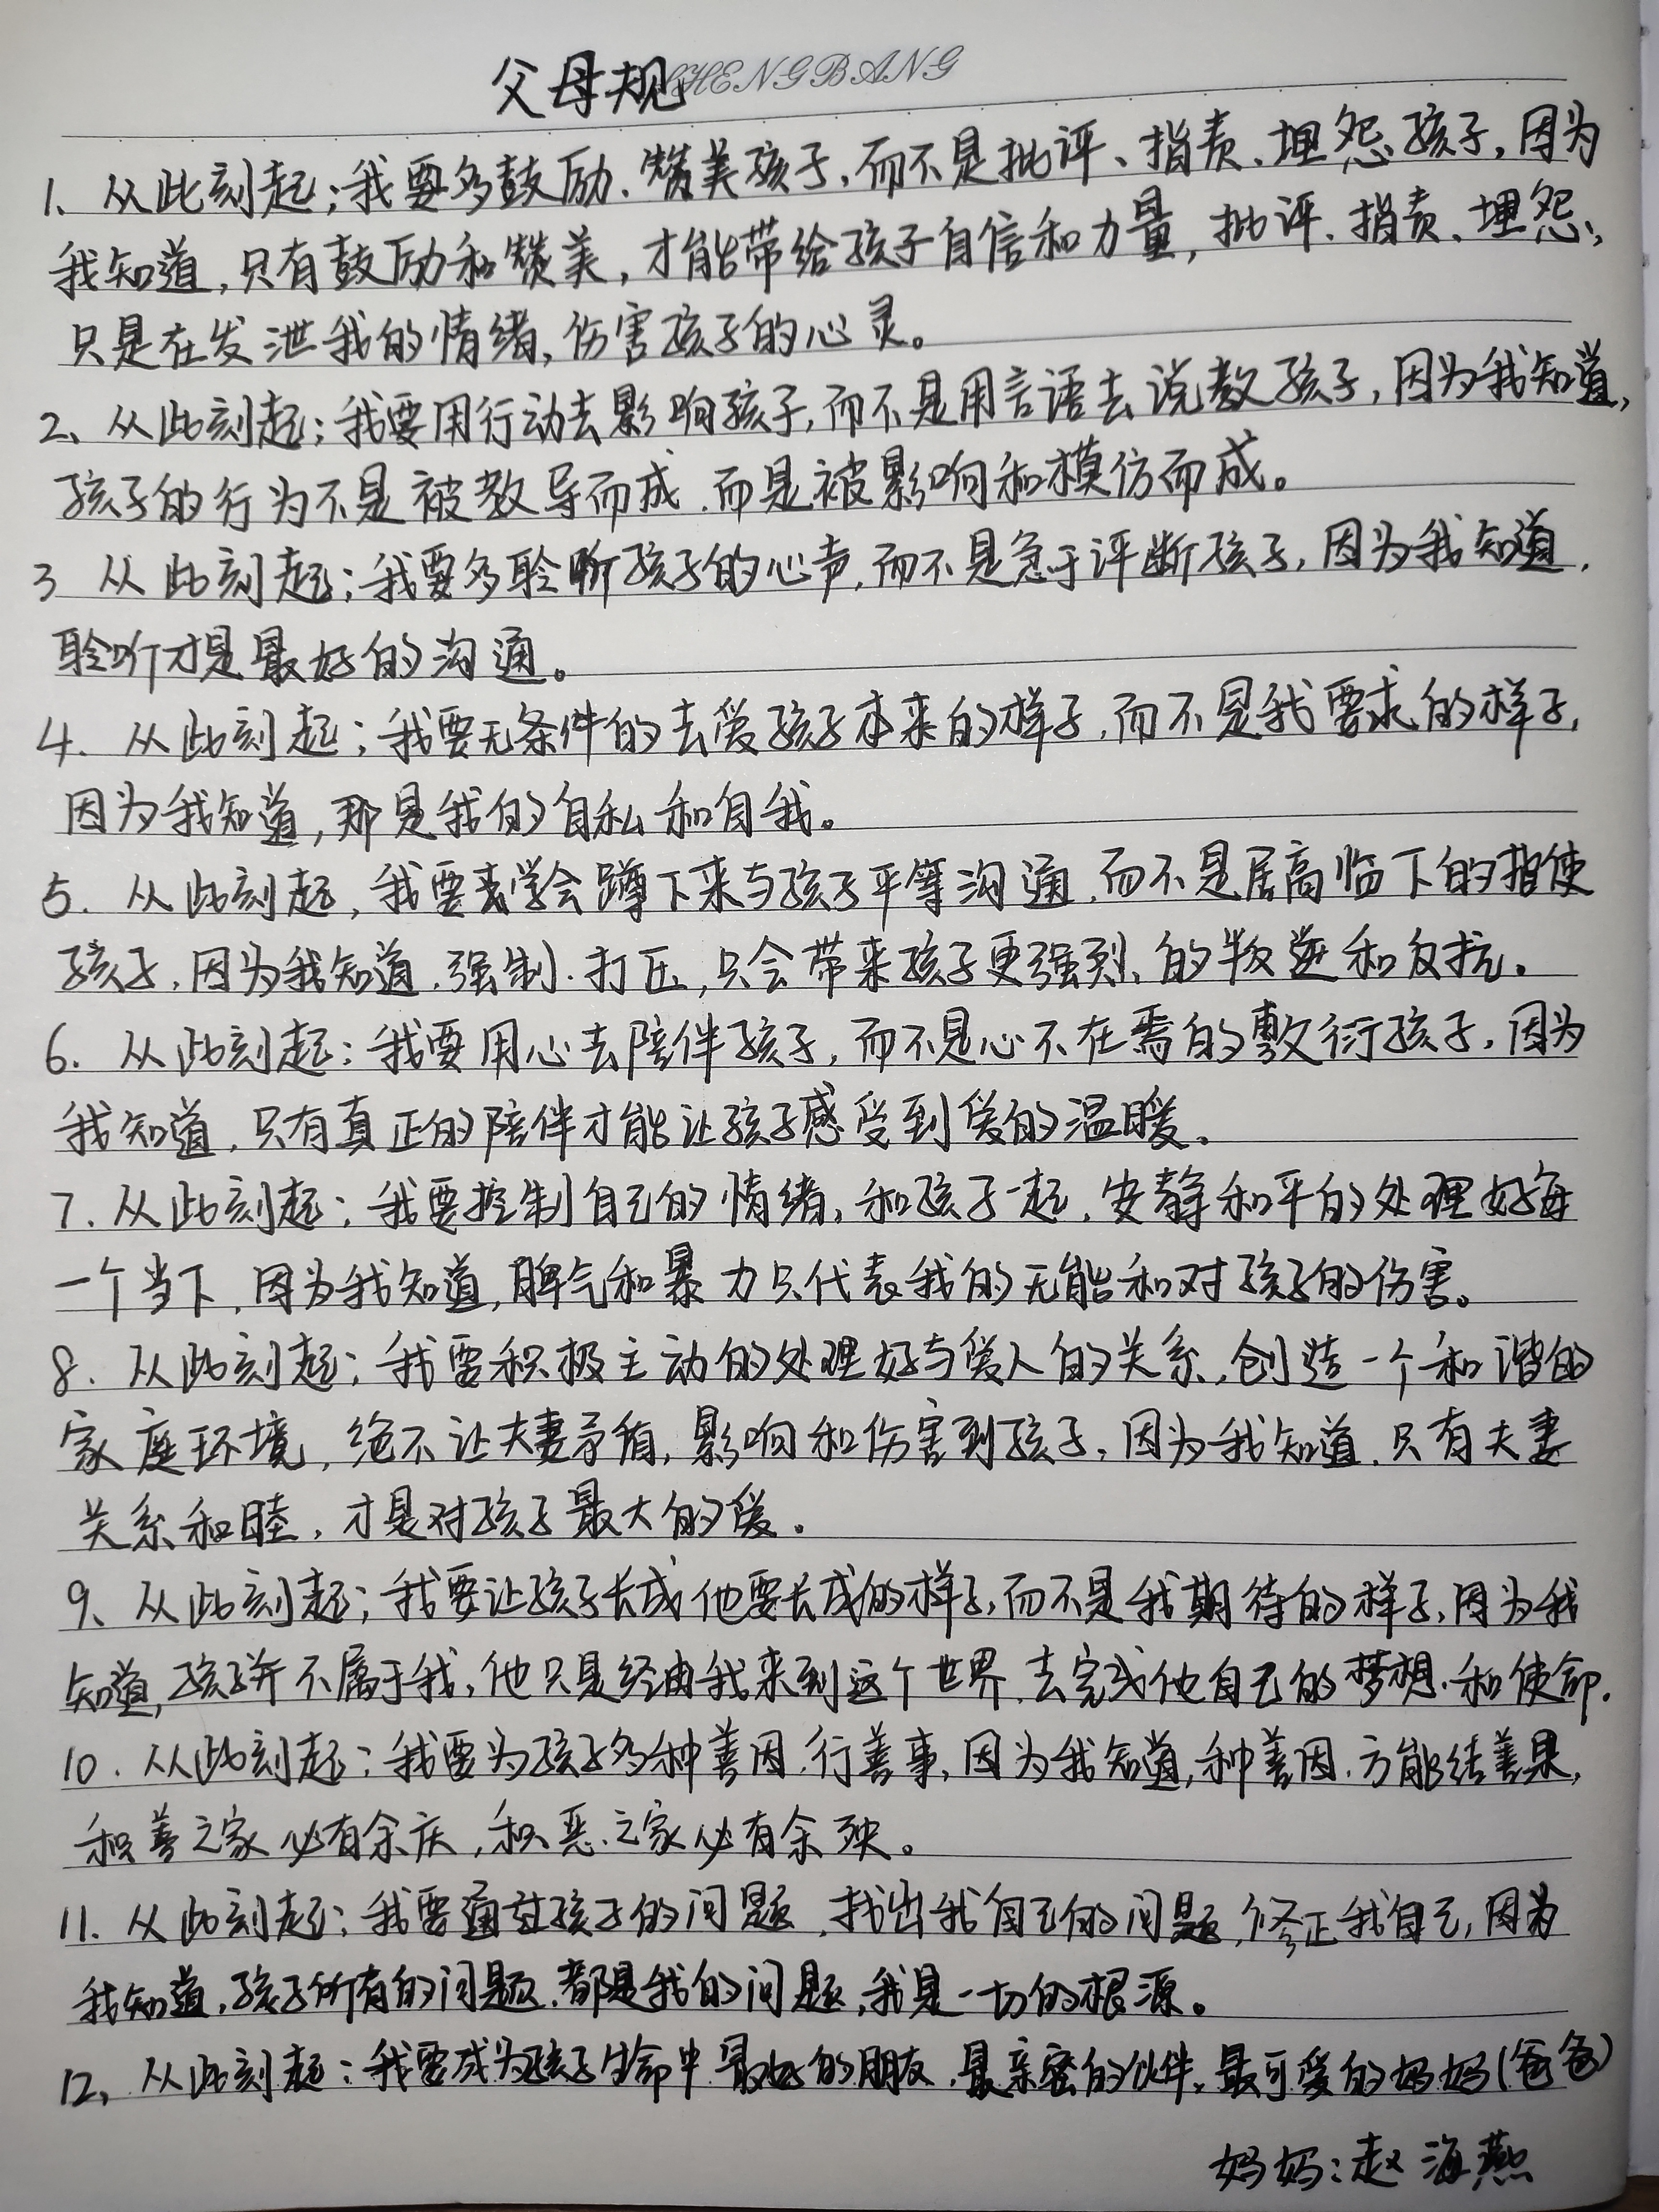 父母规
SHENGBANG
1、从此刻起;我要多鼓励、赞美孩子,而不是批评、指责、埋怨孩子,因为
我知道,只有鼓励和赞美,才能带给孩子自信和力量,批评、指责、埋怨,
只是在发泄我的情绪,伤害孩子的心灵。
2、从此刻起;我要用行动去影响孩子,而不是用言语去说教孩子,因为我知道,
孩子的行为不是被教导而成.而是被影响和模仿而成。
3 从此刻起;我要多聆听孩子的心声,而不是急于评断孩子,因为我知道,
聆听才是最好的沟通。
4. 从此刻起;我要无条件的去爱孩子本来的样子,而不是我要求的样子,
因为我知道,那是我的自私和自我。
5. 从此刻起,我要去学会蹲下来与孩子平等沟通.而不是居高临下的指使
孩子,因为我知道.强制.打压,只会带来孩子更强烈的叛逆和反抗。
6. 从此刻起:我要用心去陪伴孩子,而不是心不在焉的敷衍孩子,因为
我知道,只有真正的陪伴才能让孩子感受到爱的温暖。
7. 从此刻起;我要控制自己的情绪,和孩子一起,安静和平的处理好每
一个当下,因为我知道,脾气和暴力只代表我的无能和对孩子的伤害。
8. 从此刻起;我要积极主动的处理好与爱人的关系,创造一个和谐的
家庭环境,绝不让夫妻矛盾,影响和伤害到孩子,因为我知道.只有夫妻
关系和睦,才是对孩子最大的爱。
9、从此刻起;我要让孩子长成他要长成的样子,而不是我期待的样子,因为我
知道,孩子并不属于我,他只是经由我来到这个世界.去完成他自己的梦想.和使命.
10.从此刻起;我要为孩子多种善因.行善事,因为我知道,种善因.方能结善果,
积善之家必有余庆,积恶之家必有余殃。
11. 从此刻起;我要通过孩子的问题,找出我自己的问题,修正我自己,因为
我知道,孩子所有的问题.都是我的问题,我是一切的根源。
12、从此刻起:我要成为孩子生命中最好的朋友.最亲密的伙伴,最可爱的妈妈(爸爸)
妈妈:赵海燕